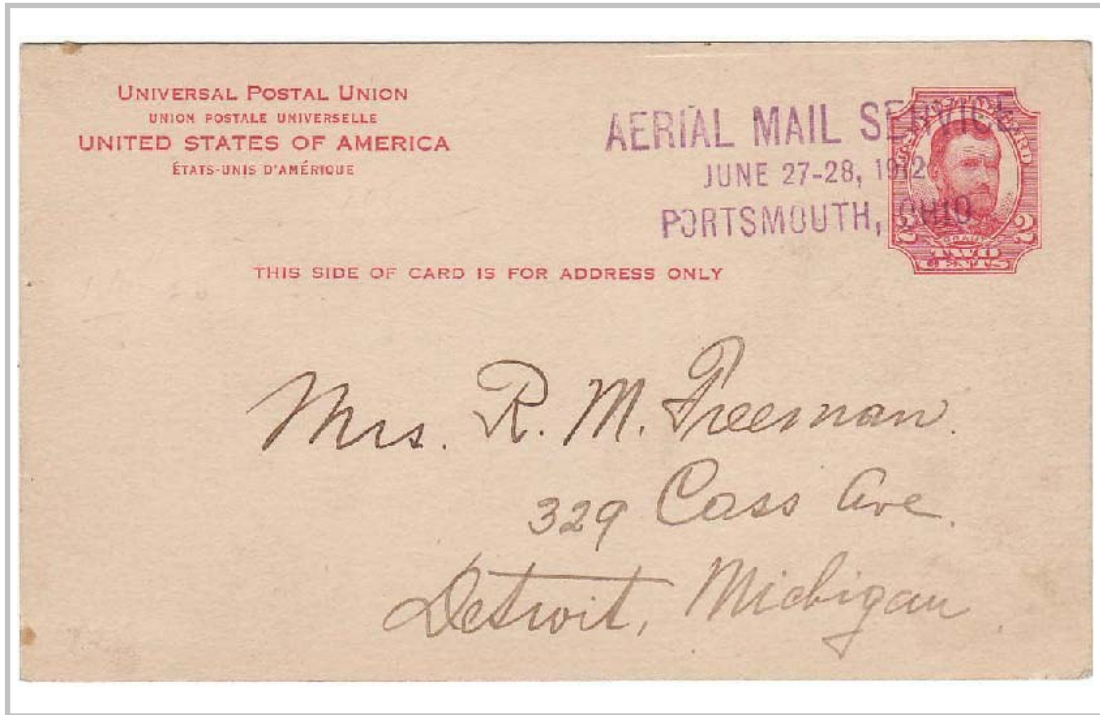 UNIVERSAL POSTAL UNION
UNION POSTALE UNIVERSELLE
UNITED STATES OF AMERICA
ÉTATS-UNIS D'AMÉRIQUE
AERIAL MAIL SERVICE
JUNE 27-28, 1912
PORTSMOUTH, OHIO
2 GRANT 2
TWO
CENTS
THIS SIDE OF CARD IS FOR ADDRESS ONLY
Mrs. R. M. Freeman.
329 Cass Ave.
Detroit, Michigan.